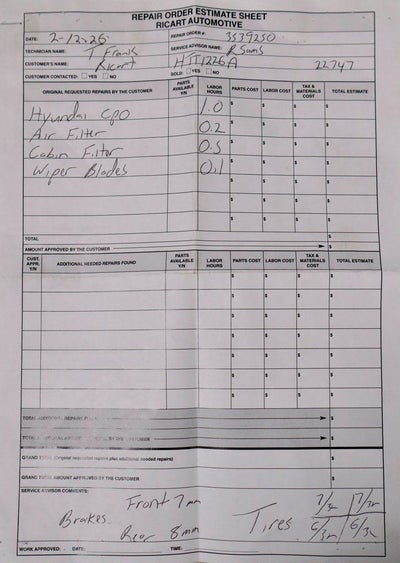 REPAIR ORDER ESTIMATE SHEET
RICART AUTOMOTIVE
DATE: 2-12-26 REPAIR ORDER #: 3539250
TECHNICIAN NAME: T Franks SERVICE ADVISOR NAME: R Sams
CUSTOMER'S NAME: Ricart HTI1226A 22747
CUSTOMER CONTACTED: YES NO SOLD: YES NO
ORIGINAL REQUESTED REPAIRS BY THE CUSTOMER PARTS AVAILABLE Y/N LABOR HOURS PARTS COST LABOR COST TAX & MATERIALS COST TOTAL ESTIMATE
Hyundai CPO 1.0 $ $ $ $
Air Filter 0.2 $ $ $ $
Cabin Filter 0.3 $ $ $ $
Wiper Blades 0.1 $ $ $ $
$ $ $ $
$ $ $ $
$ $ $ $
TOTAL $
AMOUNT APPROVED BY THE CUSTOMER $
CUST. APPR. Y/N ADDITIONAL NEEDED REPAIRS FOUND PARTS AVAILABLE Y/N LABOR HOURS PARTS COST LABOR COST TAX & MATERIALS COST TOTAL ESTIMATE
$ $ $ $
$ $ $ $
$ $ $ $
$ $ $ $
$ $ $ $
$ $ $ $
$ $ $ $
TOTAL ADDITIONAL REPAIRS $
TOTAL ADDITIONAL AMOUNT BY THE CUSTOMER $
GRAND TOTAL (Original requested repairs plus additional needed repairs) $
GRAND TOTAL AMOUNT APPROVED BY THE CUSTOMER $
SERVICE ADVISOR COMMENTS:
Brakes Front 7mm
Rear 8mm
Tires 7/32 7/32
6/32 6/32
WORK APPROVED: DATE: TIME: